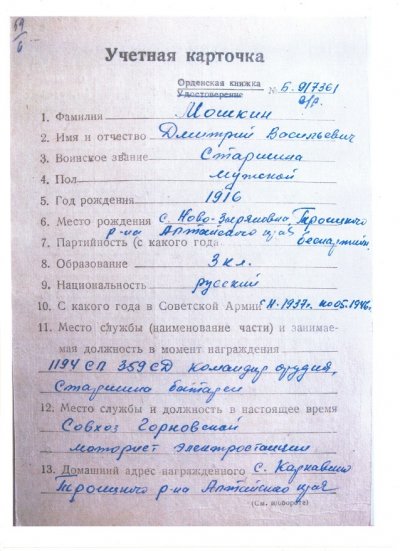 59
6
Учетная карточка
Орденская книжка
Удостоверение № Б-917361
1. Фамилия Мошкин
2. Имя и отчество Дмитрий Васильевич
3. Воинское звание Старшина
4. Пол мужской
5. Год рождения 1916
6. Место рождения с. Ново-Зыряновка Троицкого
р-на Алтайского края
7. Партийность (с какого года беспартийн.
8. Образование 3 кл.
9. Национальность русский
10. С какого года в Советской Армии с 11-1937г. по 05.1946г.
11. Место службы (наименование части) и занимае-
мая должность в момент награждения
1194 СП 359 СД командир орудия,
Старшина батареи
12. Место службы и должность в настоящее время
Совхоз Горновской
моторист электростанции
13. Домашний адрес награжденного с.
Троицкого р-на Алтайского края
(См. на обороте)